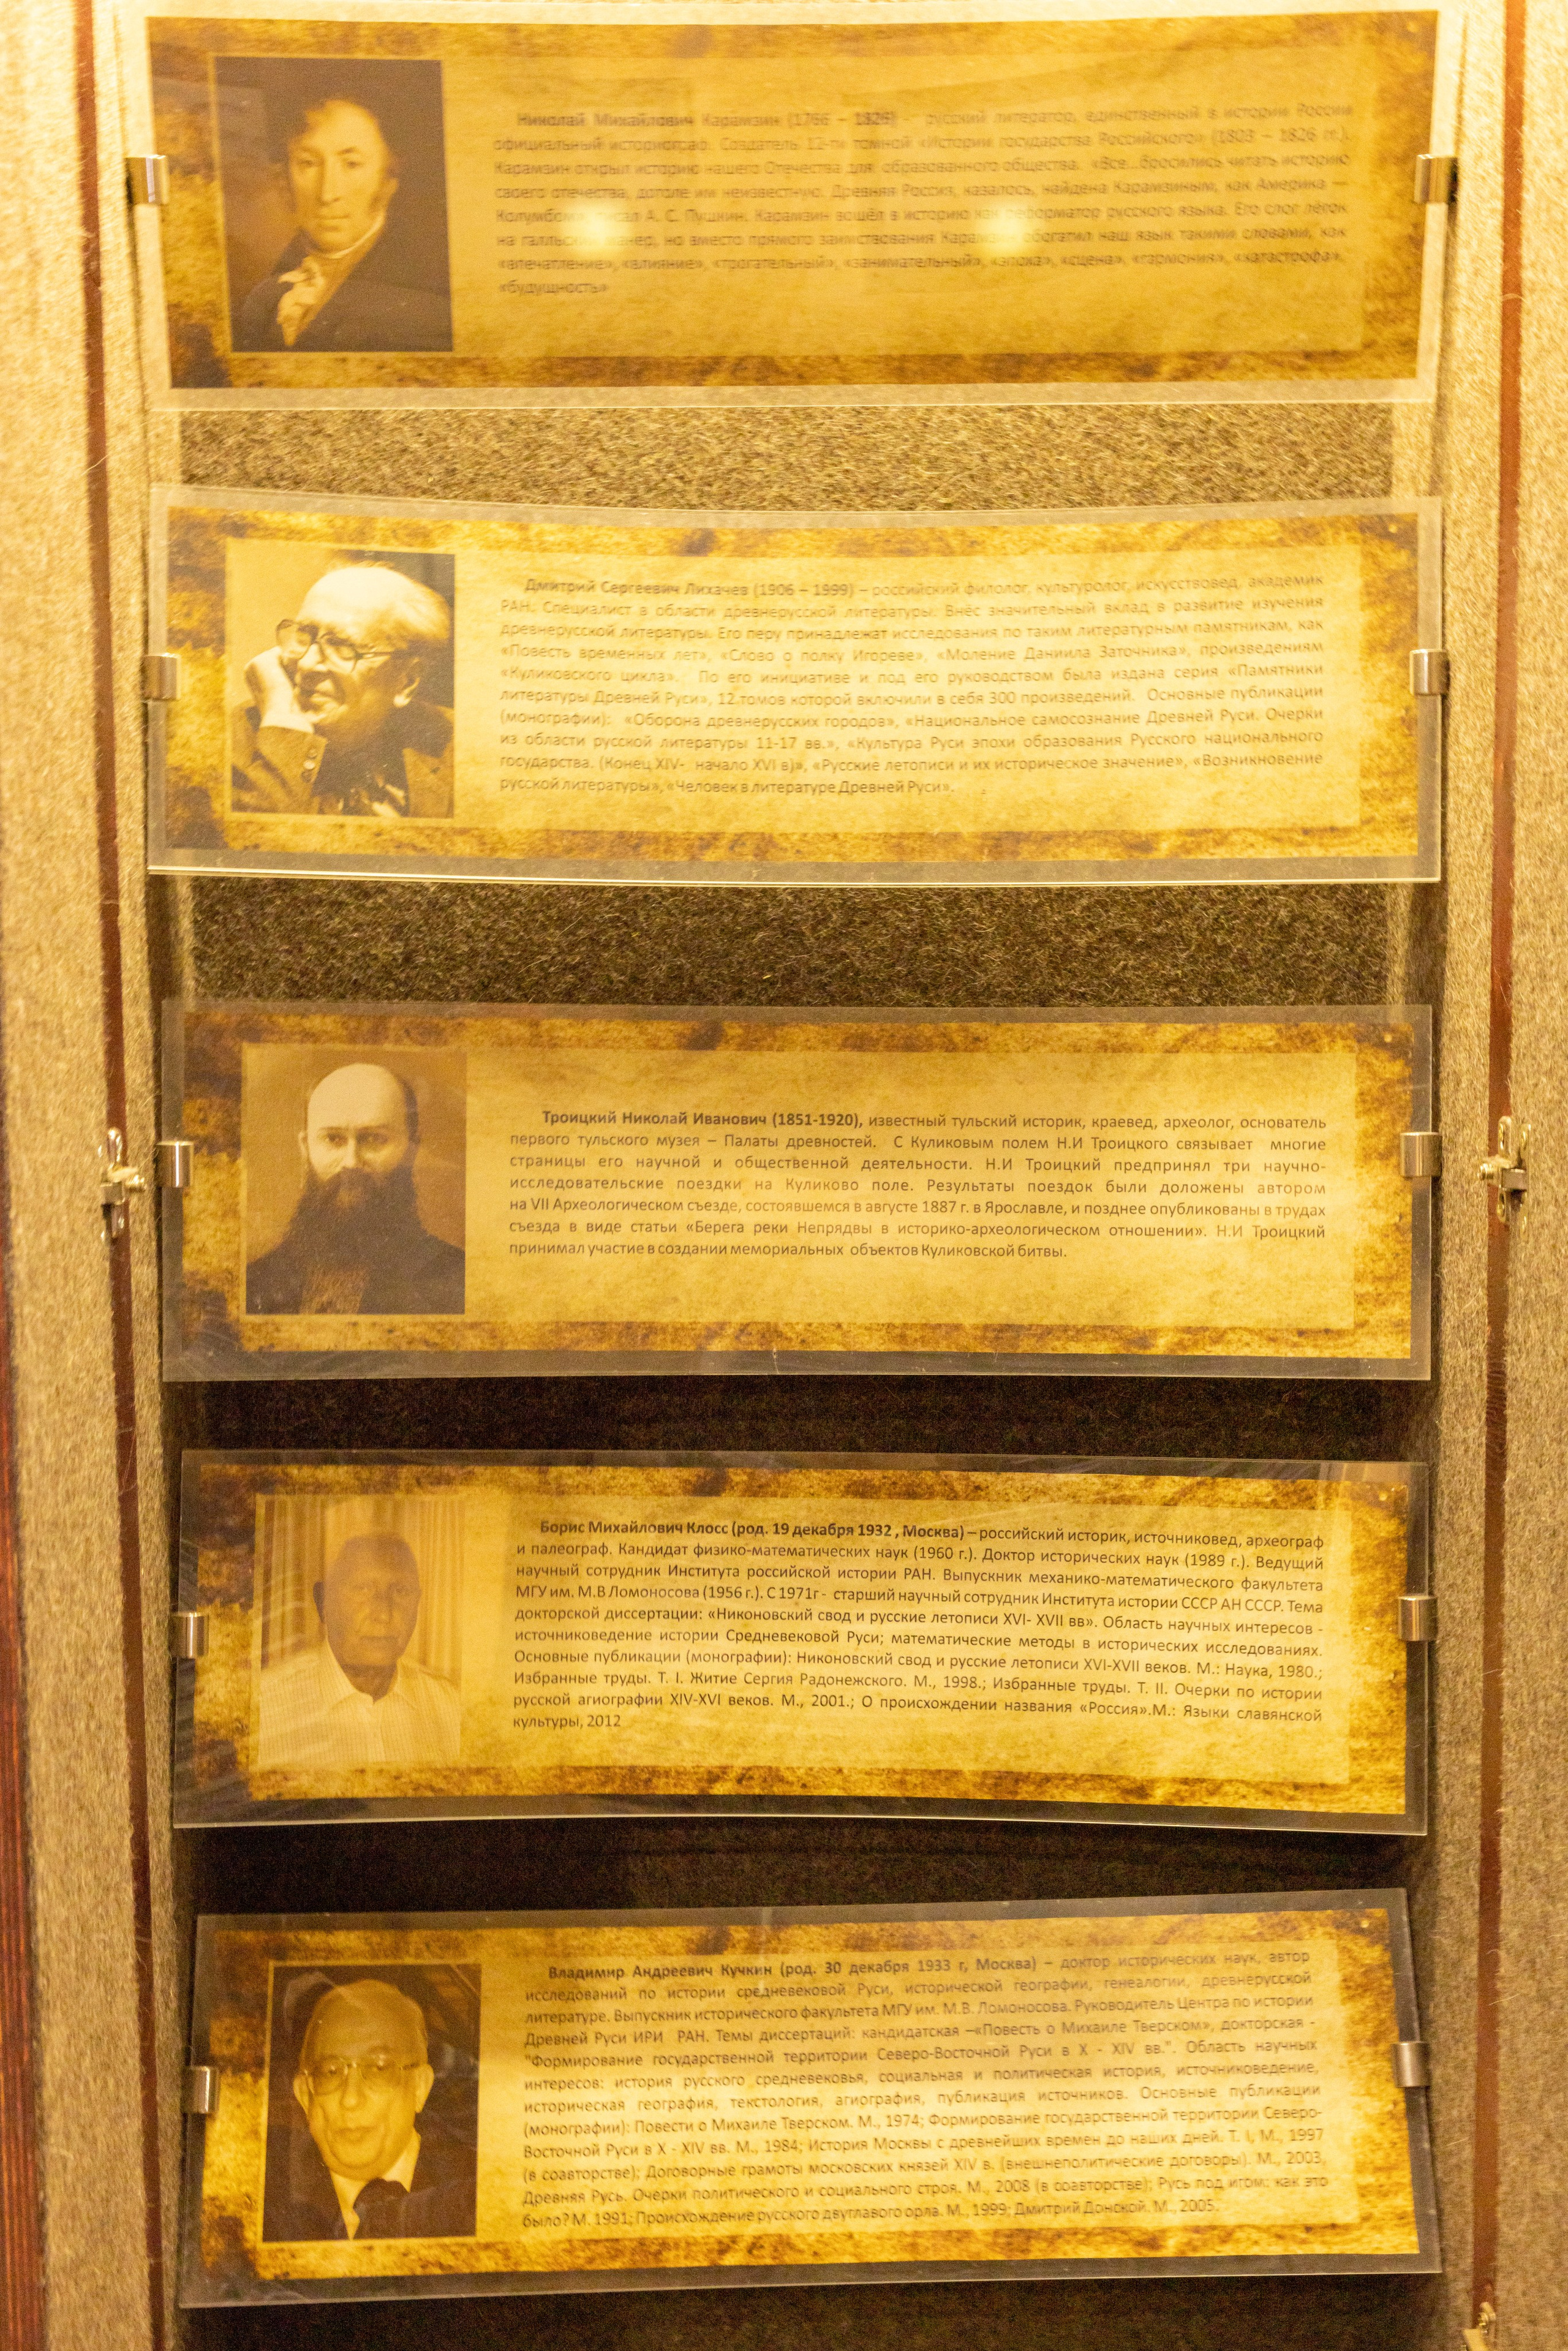 Николай Михайлович Карамзин (1766 – 1826) – русский литератор, единственный в истории России
официальный историограф. Создатель 12-ти томной «Истории государства Российского» (1803 – 1826 гг.).
Карамзин открыл историю нашего Отечества для образованного общества. «Все...бросились читать историю
своего отечества, дотоле им неизвестную. Древняя Россия, казалось, найдена Карамзиным, как Америка —
А. С. Пушкин. Карамзин вошёл в историю как реформатор русского языка. Его слог лёгок
на манер, но вместо прямого заимствования обогатил наш язык такими словами, как
«впечатление», «влияние», «трогательный», «занимательный», «эпоха», «сцена», «гармония», «катастрофа»,
«будущность»
Дмитрий Сергеевич Лихачев (1906 – 1999) – российский филолог, культуролог, искусствовед, академик
РАН. Специалист в области древнерусской литературы. Внёс значительный вклад в развитие изучения
древнерусской литературы. Его перу принадлежат исследования по таким литературным памятникам, как
«Повесть временных лет», «Слово о полку Игореве», «Моление Даниила Заточника», произведениям
«Куликовского цикла». По его инициативе и под его руководством была издана серия «Памятники
литературы Древней Руси», 12 томов которой включили в себя 300 произведений. Основные публикации
(монографии): «Оборона древнерусских городов», «Национальное самосознание Древней Руси. Очерки
из области русской литературы 11-17 вв.», «Культура Руси эпохи образования Русского национального
государства. (Конец XIV- начало XVI в)», «Русские летописи и их историческое значение», «Возникновение
русской литературы», «Человек в литературе Древней Руси».
Троицкий Николай Иванович (1851-1920), известный тульский историк, краевед, археолог, основатель
первого тульского музея – Палаты древностей. С Куликовым полем Н.И Троицкого связывает многие
страницы его научной и общественной деятельности. Н.И Троицкий предпринял три научно-
исследовательские поездки на Куликово поле. Результаты поездок были доложены автором
на VII Археологическом съезде, состоявшемся в августе 1887 г. в Ярославле, и позднее опубликованы в трудах
съезда в виде статьи «Берега реки Непрядвы в историко-археологическом отношении». Н.И Троицкий
принимал участие в создании мемориальных объектов Куликовской битвы.
Борис Михайлович Клосс (род. 19 декабря 1932 , Москва) – российский историк, источниковед, археограф
и палеограф. Кандидат физико-математических наук (1960 г.). Доктор исторических наук (1989 г.). Ведущий
научный сотрудник Института российской истории РАН. Выпускник механико-математического факультета
МГУ им. М.В Ломоносова (1956 г.). С 1971г - старший научный сотрудник Института истории СССР АН СССР. Тема
докторской диссертации: «Никоновский свод и русские летописи XVI- XVII вв». Область научных интересов -
источниковедение истории Средневековой Руси; математические методы в исторических исследованиях.
Основные публикации (монографии): Никоновский свод и русские летописи XVI-XVII веков. М.: Наука, 1980.;
Избранные труды. Т. I. Житие Сергия Радонежского. М., 1998.; Избранные труды. Т. II. Очерки по истории
русской агиографии XIV-XVI веков. М., 2001.; О происхождении названия «Россия».М.: Языки славянской
культуры, 2012
Владимир Андреевич Кучкин (род. 30 декабря 1933 г, Москва) – доктор исторических наук, автор
исследований по истории средневековой Руси, исторической географии, генеалогии, древнерусской
литературе. Выпускник исторического факультета МГУ им. М.В. Ломоносова. Руководитель Центра по истории
Древней Руси ИРИ РАН. Темы диссертаций: кандидатская –«Повесть о Михаиле Тверском», докторская -
"Формирование государственной территории Северо-Восточной Руси в X - XIV вв.". Область научных
интересов: история русского средневековья, социальная и политическая история, источниковедение,
историческая география, текстология, агиография, публикация источников. Основные публикации
(монографии): Повести о Михаиле Тверском. М., 1974; Формирование государственной территории Северо-
Восточной Руси в X - XIV вв. М., 1984; История Москвы с древнейших времен до наших дней. Т. I, М., 1997
(в соавторстве); Договорные грамоты московских князей XIV в. (внешнеполитические договоры). М., 2003,
Древняя Русь. Очерки политического и социального строя. М., 2008 (в соавторстве); Русь под игом: как это
было? М. 1991; Происхождение русского двуглавого орла. М., 1999; Дмитрий Донской. М., 2005.